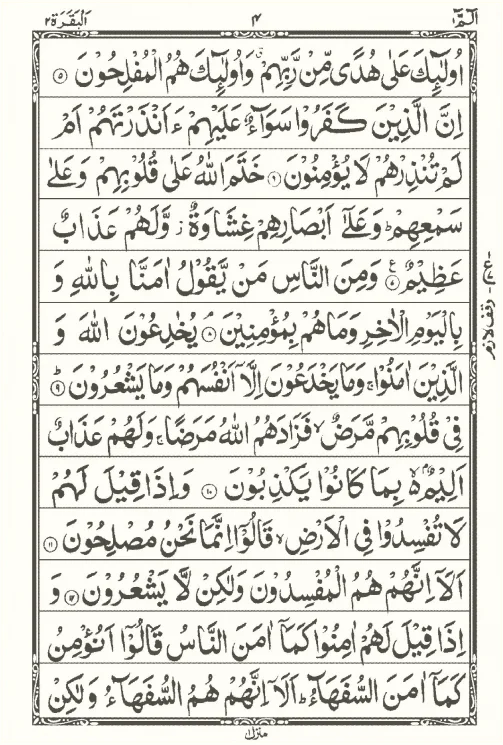 الٓمّٓ ١ ٤ اَلْبَقَرَة ٢
اُولٰٓئِكَ عَلٰى هُدًى مِّنْ رَّبِّهِمْ ۗ وَاُولٰٓئِكَ هُمُ الْمُفْلِحُوْنَ ۝٥
اِنَّ الَّذِيْنَ كَفَرُوْا سَوَآءٌ عَلَيْهِمْ ءَاَنْذَرْتَهُمْ اَمْ
لَمْ تُنْذِرْهُمْ لَا يُؤْمِنُوْنَ ۝٦ خَتَمَ اللّٰهُ عَلٰى قُلُوْبِهِمْ وَعَلٰى
سَمْعِهِمْ ؕ وَعَلٰٓى اَبْصَارِهِمْ غِشَاوَةٌ ز وَّلَهُمْ عَذَابٌ
عَظِيْمٌ ۝٧ ع وَمِنَ النَّاسِ مَنْ يَّقُوْلُ اٰمَنَّا بِاللّٰهِ وَ
بِالْيَوْمِ الْاٰخِرِ وَمَا هُمْ بِمُؤْمِنِيْنَ ۝٨ ۘ يُخٰدِعُوْنَ اللّٰهَ وَ
الَّذِيْنَ اٰمَنُوْا ۚ وَمَا يَخْدَعُوْنَ اِلَّآ اَنْفُسَهُمْ وَمَا يَشْعُرُوْنَ ۝٩ ؕ
فِيْ قُلُوْبِهِمْ مَّرَضٌ ۙ فَزَادَهُمُ اللّٰهُ مَرَضًا ۚ وَلَهُمْ عَذَابٌ
اَلِيْمٌۢ ۙ بِمَا كَانُوْا يَكْذِبُوْنَ ۝١٠ وَاِذَا قِيْلَ لَهُمْ
لَا تُفْسِدُوْا فِي الْاَرْضِ ۙ قَالُوْٓا اِنَّمَا نَحْنُ مُصْلِحُوْنَ ۝١١
اَلَآ اِنَّهُمْ هُمُ الْمُفْسِدُوْنَ وَلٰكِنْ لَّا يَشْعُرُوْنَ ۝١٢ وَ
اِذَا قِيْلَ لَهُمْ اٰمِنُوْا كَمَآ اٰمَنَ النَّاسُ قَالُوْٓا اَنُؤْمِنُ
كَمَآ اٰمَنَ السُّفَهَآءُ ؕ اَلَآ اِنَّهُمْ هُمُ السُّفَهَآءُ وَلٰكِنْ
وقف لازم
منزل ١